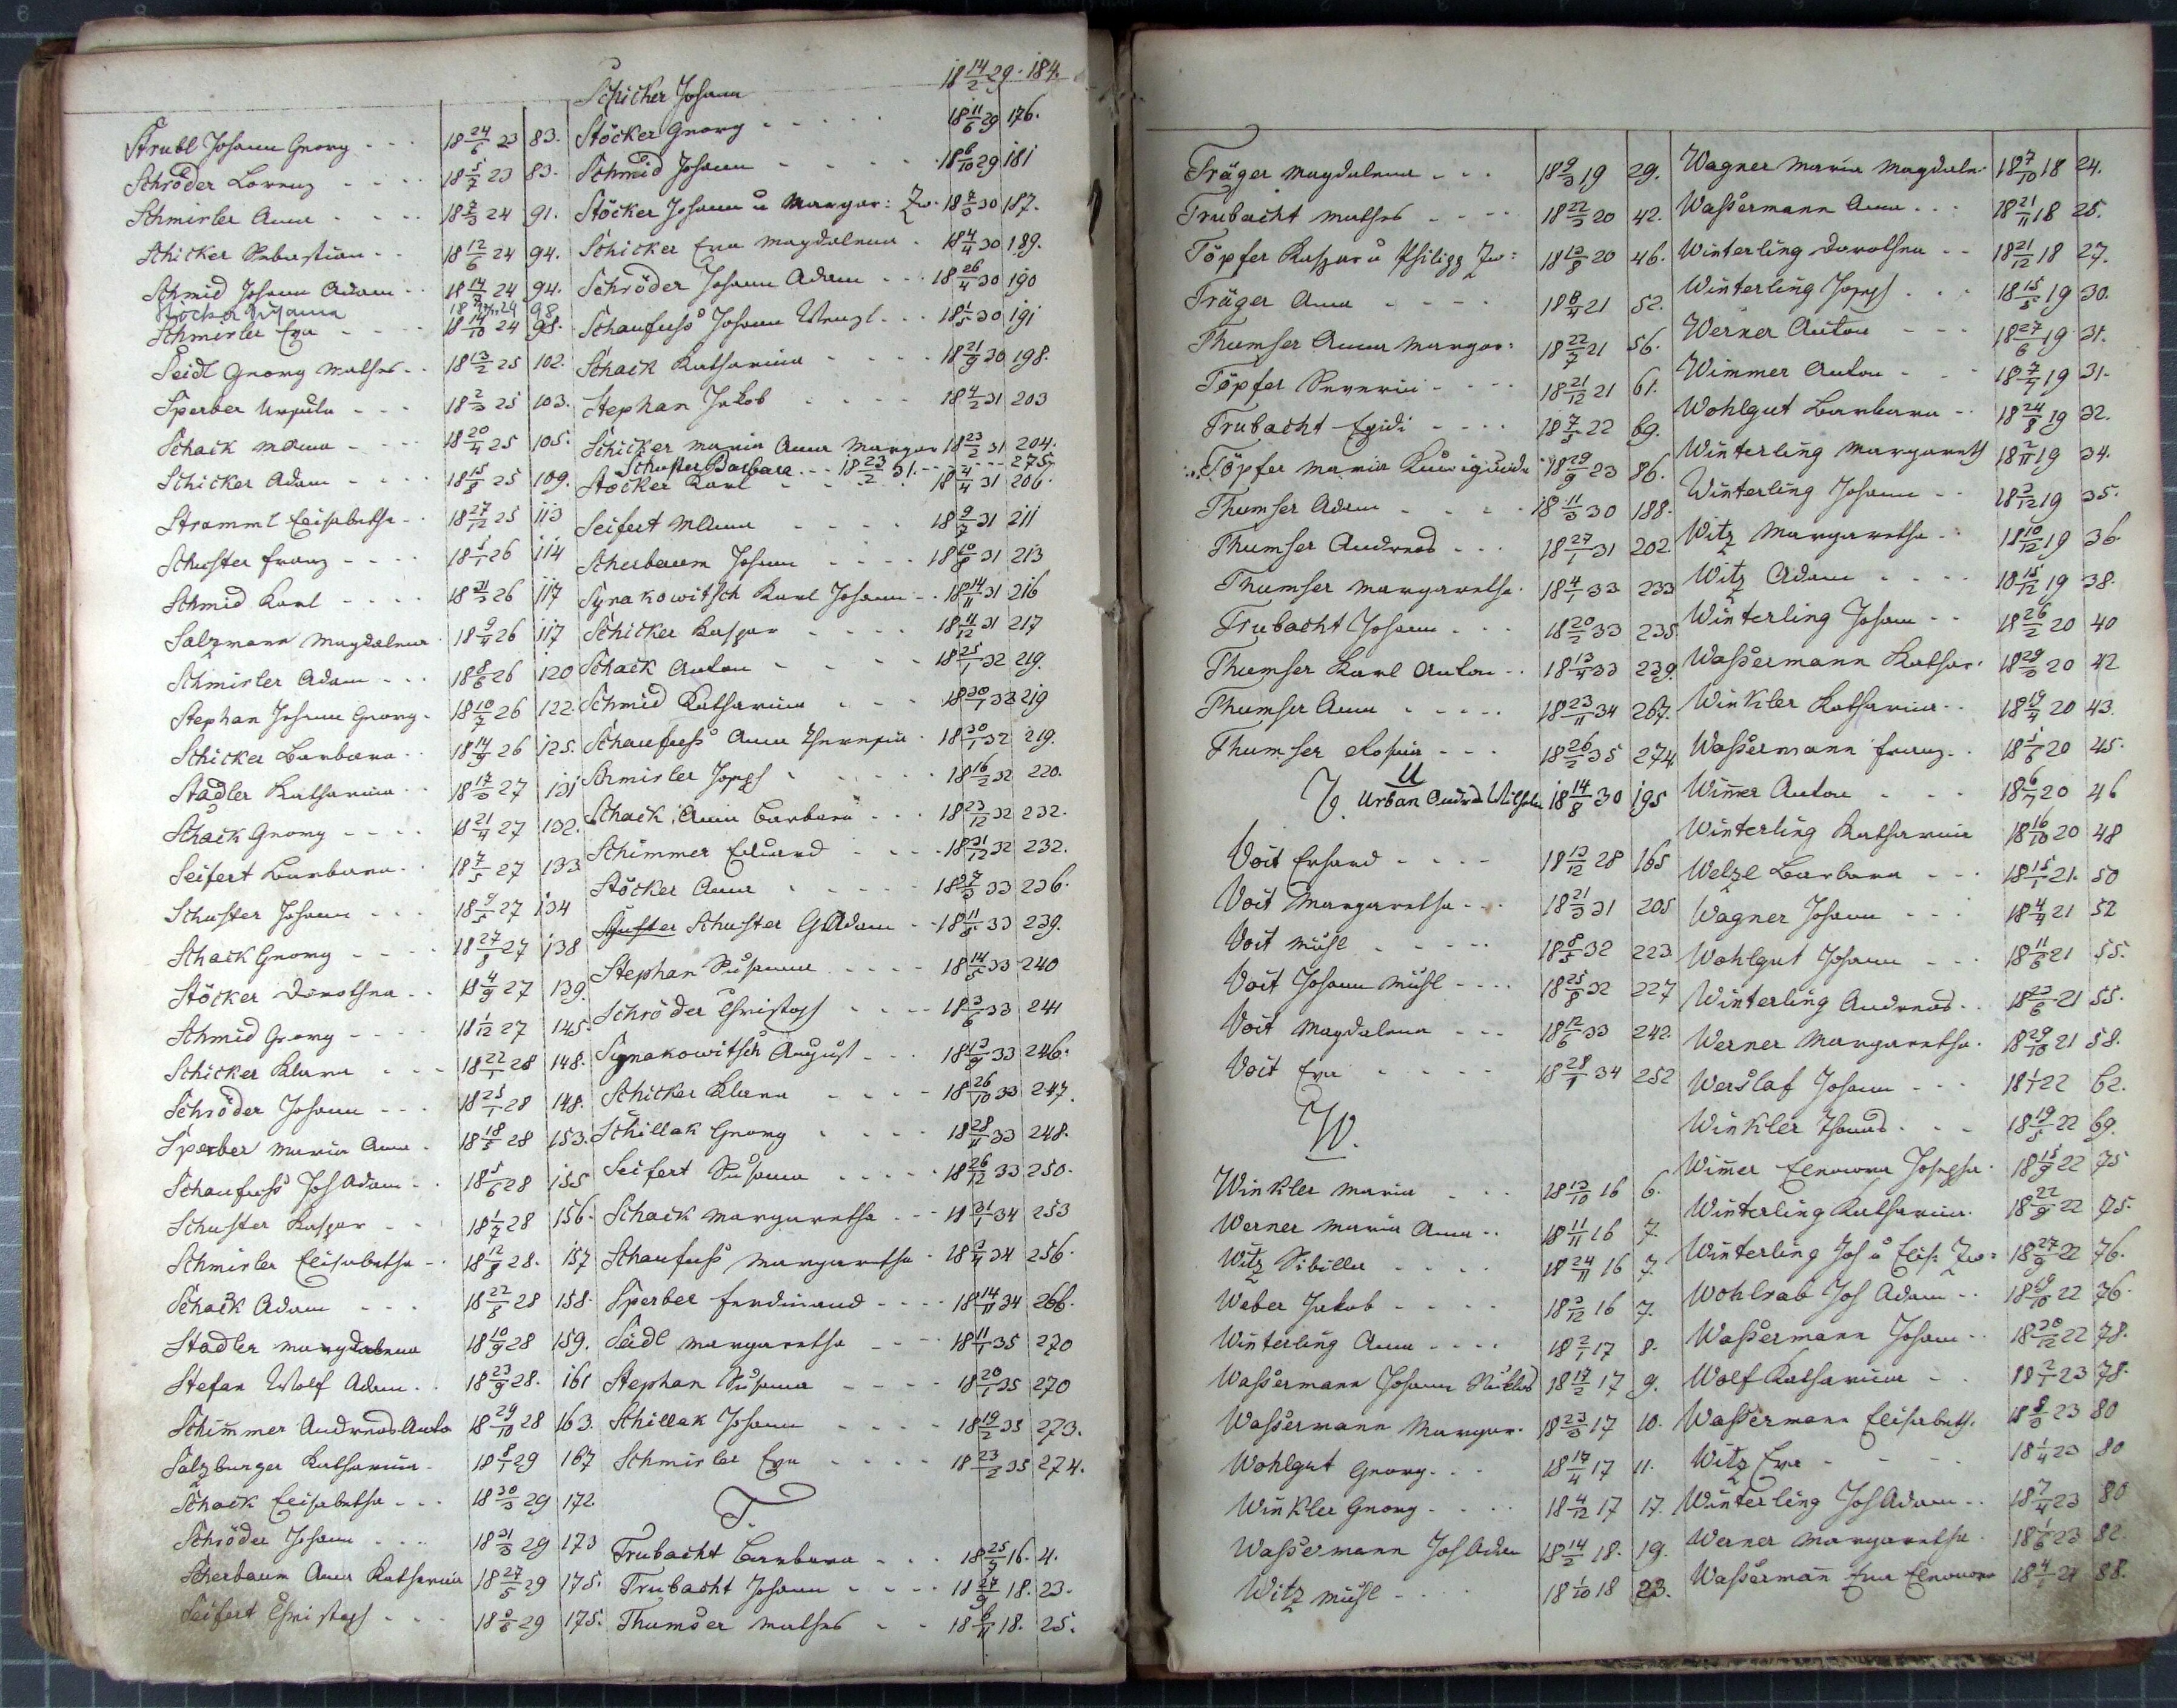 Strubl Johann Georg - - - 18 24/6 23 83.
Schröder Lorenz - - - - 18 5/7 23 83.
Schmirler Anna - - - - 18 7/3 24 91.
Schicker Sebastian - - 18 12/6 24 94.
Schmid Johann Adam - - 18 14/7 24 94.
98
Schmirler Eva - - - - 18 14/10 24 98.
Seidl Georg Mathes - - 18 13/2 25 102.
Sperber Ursula - - - 18 2/3 25 103.
Schack MAnna - - - - 18 20/4 25 105.
Schicker Adam - - - - 18 15/8 25 109.
Stramml Elisabetha - - 18 27/12 25 113
Schuster Franz - - - - 18 5/1 26 114
Schmid Karl - - - - 18 31/3 26 117
Salzmann Magdalena - 18 9/4 26 117
Schmirler Adam - - - 18 8/6 26 120
Stephan Johann Georg - 18 10/7 26 122
Schicker Barbara - - 18 14/9 26 125.
Stadler Katharina - - 18 17/3 27 131
Schack Georg - - - - 18 21/4 27 132.
Seifert Barbara - - 18 7/5 27 133
Schuster Johann - - - 18 9/5 27 134
Schack Georg - - - - 18 27/8 27 138
Stöcker Dorothea - - 18 4/9 27 139.
Schmid Georg - - - - 18 1/12 27 145.
Schicker Klara - - - 18 22/1 28 148.
Schröder Johann - - - 18 25/1 28 148.
Sperber Maria Anna - 18 18/5 28 153.
Schaufuss Joh Adam - - 18 5/6 28 155
Schuster Kaspar - - 18 1/7 28 156.
Schmirler Elisabetha - - 18 12/8 28. 157
Schack Adam - - - 18 22/8 28 158.
Stadler Magdalena 18 10/9 28 159.
Stefan Wolf Adam - - 18 23/9 28. 161
Schimmer Andreas Anto 18 29/10 28 163.
Salzburger Katharina - 18 8/1 29 167
Schack Elisabetha - - - 18 30/3 29 172
Schröder Johann - - - 18 31/3 29 173
Scherbaum Anna Katharina 18 27/5 29 175.
Seifert Christoph - - - 29 175.
Schicker Johann 18 14/2 29 - 184.
Stöcker Georg - - - - - 18 11/6 29 176.
Schmid Johann - - - - 18 6/10 29 181
Stöcker Johann u Margar: Zw. 18 7/3 30 187.
Schicker Eva Magdalena - 18 4/4 30 189.
Schröder Johann Adam - - - 18 26/4 30 190
Schaufuss Johann Wenzl - - - 18 1/5 30 191
Schack Katharina - - - - 18 21/9 30 198.
Stephan Jakob - - - - 18 4/2 31 203
Schicker Maria Anna Margar 18 23/2 31 204.
Schuster Barbara - - - 18 23/2 31. - - - - 275.
Stöcker Karl - - - - 18 4/4 31 206.
Seifert MAnna - - - - 18 9/7 31 211
Scherbaum Johann - - - - 18 10/8 31 213
Synakowitsch Karl Johann - - 18 14/11 31 216
Schicker Kaspar - - - - 18 11/12 31 217
Schack Anton - - - - 18 25/1 32 219.
Schmid Katharina - - - 18 30/1 32 219
Schaufuss Anna Theresia - 18 30/1 32 219.
Schmirler Joseph - - - - - 18 16/2 32 220.
Schack Anna Barbara - - - 18 23/12 32 232.
Schimmer Eduard - - - - 18 31/12 32 232.
Stöcker Anna - - - - - 18 27/3 33 236.
Schuster GAdam - - 33 239.
Stephan Susanna - - - - 18 14/5 33 240
Schröder Christoph - - - - 18 3/6 33 241
Synakowitsch August - - - 18 13/9 33 246.
Schicker Klara - - - - 18 26/10 33 247.
Schillak Georg - - - - 18 28/11 33 248.
Seifert Susanna - - - - - 18 26/12 33 250.
Schack Margaretha - - - 18 31/1 34 253
Schaufuss Margaretha - 18 3/4 34 256.
Sperber Ferdinand - - - - 18 14/11 34 266.
Seidl Margaretha - - - 18 11/1 35 270
Stephan Susanna - - - - 18 20/1 35 270
Schillak Johann - - - - 18 19/2 35 273.
Schmirler Eva - - - - 18 23/2 35 274.
T.
Trubacht Barbara - - - 18 25/7 16. 4.
Trubacht Johann - - - - 18 27/9 18. 23.
Thumser Mathes - - 18 6/11 18. 25.
Träger Magdalena - - - 18 9/3 19 29.
Trubacht Mathes - - - - 18 22/3 20 42.
Töpfer Kaspar u Philipp Zw: 18 13/8 20 46.
Träger Anna - - - - 18 8/4 21 52.
Thumser Anna Margar: 18 22/7 21 56.
Töpfer Severin - - - - 18 21/12 21 61.
Trubacht Egidi - - - - 18 7/5 22 69.
Töpfer Maria Kunigunda 18 29/9 23 86.
Thumser Adam - - - - 18 11/3 30 188.
Thumser Andreas - - - 18 27/1 31 202
Thumser Margaretha - 18 4/1 33 233
Trubacht Johann - - - 18 20/2 33 235
Thumser Karl Anton - - 18 13/4 33 239.
Thumser Anna - - - - - 18 23/11 34 267.
Thumser Rosina - - - 18 26/2 35 274
U
V. Urban Andrä Wilhelm 18 14/8 30 195
Voit Erhard - - - - 18 13/12 28 165
Voit Margaretha - - - 18 21/3 31 205
Voit Michl - - - - - 18 8/5 32 223
Voit Johann Michl - - - - 18 25/8 32 227
Voit Magdalena - - - 18 12/6 33 242.
Voit Eva - - - - - 18 28/1 34 252
W.
Winkler Maria - - - 18 13/10 16 6.
Werner Maria Anna - - 18 11/11 16 7.
Witz Sibilla - - - - 18 24/11 16 7.
Weber Jakob - - - - 18 3/12 16 7.
Winterling Anna - - - - 18 2/1 17 8.
Wassermann Johann Niklas 18 17/2 17 9.
Wassermann Margar. 18 23/3 17 10.
Wohlgut Georg - - - 18 17/4 17 11.
Winkler Georg - - - - 18 4/12 17 17.
Wassermann Joh Adam 18 14/2 18. 19.
Witz Michl - - - - 18 1/10 18 23.
Wagner Maria Magdale- 18 7/10 18 24.
Wassermann Anna - - - 18 21/11 18 25.
Winterling Dorothea - - 18 21/12 18 27.
Winterling Joseph - - - 18 15/5 19 30.
Werner Anton - - - 18 27/6 19 31.
Wimmer Anton - - - 18 7/7 19 31.
Wohlgut Barbara - - 18 24/8 19 32.
Winterling Margareth 18 2/11 19 34.
Winterling Johann - - 18 3/12 19 35.
Witz Margaretha - - 18 10/12 19 36.
Witz Adam - - - - 18 15/12 19 38.
Winterling Johann - - 18 26/2 20 40
Wassermann Kathar. 18 29/3 20 42
Winkler Katharina - - 18 19/4 20 43.
Wassermann Franz - - 18 5/6 20 45.
Wim̅er Anton - - - 18 6/7 20 46
Winterling Katharina 18 16/10 20 48
Welzl Barbara - - - 18 15/1 21. 50
Wagner Johann - - - 18 4/4 21 52
Wohlgut Johann - - - 18 11/6 21 55.
Winterling Andreas - - 18 23/6 21 55.
Werner Margaretha - 18 29/10 21 58.
Werslaf Johann - - - 18 1/1 22 62.
Winkler Thomas - - - 18 19/5 22 69.
Wim̅er Eleonora Josepha - 18 15/9 22 75
Winterling Katharina - 18 22/9 22 75.
Winterling Jos u Elis. Zw: 18 27/9 22 76.
Wohlrab Joh Adam - - 22 76.
Wassermann Johann - - 18 30/12 22 78.
Wolf Katharina - - 18 2/1 23 78.
Wassermann Elisabeth. 18 8/3 23 80
Witz Eva - - - - 18 1/4 23 80
Winterling Joh Adam - - 18 7/4 23 80
Werner Margaretha - 18 1/6 23 82.
Wasserman̅ Eva Eleonora 24 88.